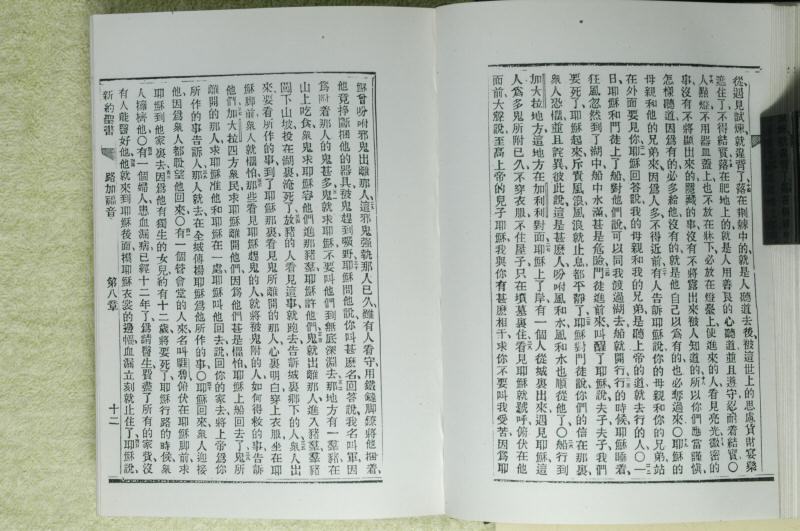 從遇見試煉就違背了落在荊棘中的就是人聽道去後被這世上的思慮貨財宴樂
進住了不得結實落在肥地上的就是人用善良的心聽道並且遵守忍耐着結實○
人點燈不用器皿蓋上也不放在牀下必放在燈臺上使進來的人看見亮光微密的
事沒有不將顯出來的隱藏的事沒有不將露出來被人知道的所以你們應當謹愼
怎樣聽道因爲有的必多給他沒有的就是他自己以爲有的也必奪過來○耶穌的
母親和他的兄弟來因爲人多不得近前有人告訴耶穌說你的母親和你的兄弟站
在外面要見你耶穌回答說我的母親和我的兄弟是聽上帝的道就去行的人○一
日耶穌和門徒上了船對他們說可以同我渡過湖去船就開行行的時候耶穌睡着
狂風忽然到了湖中船中水滿甚是危險門徒進前來叫醒了耶穌說夫子夫子我們
要死了耶穌起來斥責風浪風浪就止息都平靜了耶穌對門徒說你們的信在那裏
衆人恐懼並且詫異彼此說這是甚麽人吩咐風和水風和水也順從他了○船行到
加大拉地方這地方在加利利對面耶穌上了岸有一個人從城裏出來遇見耶穌這
人爲多鬼所附已久不穿衣服不住屋子只在墳墓裏住看見耶穌就號呼俯伏在他
面前大聲說至高上帝的兒子耶穌我與你有甚麽相干求你不要叫我受苦因爲耶
穌曾吩咐邪鬼出離那人這邪鬼強執那人已久雖有人看守用鐵鏈脚鐐將他捆着
他竟掙斷捆他的器具被鬼趕到曠野耶穌問他說你叫甚麽名回答說我名叫軍因
爲附着那人的鬼甚多鬼就求耶穌不要叫他們到無底深淵去那地方有一羣豬在
山上吃食衆鬼求耶穌容他們進那豬羣耶穌許他們鬼就出離那人進入豬羣羣豬
闖下山坡投在湖裏淹死了放豬的人看見這事就跑去告訴城裏鄉下的人衆人出
來要看所作的事到了耶穌那裏看見鬼所離開的那人心裏明白穿上衣服坐在耶
穌脚前衆人就懼怕那些看見耶穌趕鬼的人就將被鬼附的人如何得救的事告訴
他們加大拉四方衆民求耶穌離開他們因爲他們甚是懼怕耶穌上船回去了鬼所
離開的那人求耶穌准他和耶穌在一處耶穌叫他回去說回你的家去將上帝爲你
所作的事告訴人那人就去在全城傳揚耶穌爲他所作的事○耶穌回來衆人迎接
他因爲衆人都盼望他回來○有一個管會堂的人來名叫睚魯俯伏在耶穌脚前求
耶穌到他家裏去因爲他有獨生的女兒約有十二歲將要死了耶穌行路的時候衆
人擁擠他○有一個婦人患血漏病已經十二年了爲請醫生野盡了所有的家貲沒
有人能醫好他他就來到耶穌後面摸耶穌衣裳的邊幅血漏立刻就止住了耶穌說
新約聖書 路加福音 第八章 十二